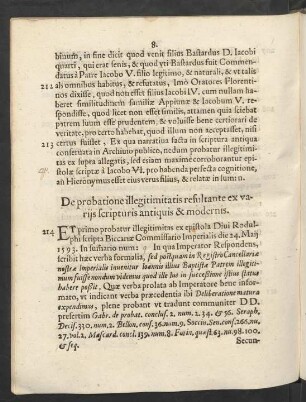 8.
bilium, in fine dicit quod venit filius Bastardus D. Iacobi
quarti, qui erat senis, & quod yti Bastardus fuit Commen-
datus à Patre Iacobo V. filio legitimo, & naturali, & vt talis
212 ab omnibus habitus, & refutatus, Imò Oratores Florenti-
nos dixisse, quod non esset filius Iacobi IV. cum nullam ha-
beret similitudinem familiæ Appianæ & Iacobum V. re-
spondisse, quod licet non esset similis, attamen quia sciebat
patrem suum esse prudentem, & voluisse bene certiorari de
veritate, pro certo habebat, quod illum non acceptasset, nisi
213 certus fuisset, Ex qua narratiua facta in scriptura antiqua
conseruata in Archiuio publico, nedum probatur illegitimi-
tas ex supra allegatis, sed etiam maximè corroborantur epi-
stolæ scriptæ à Iacobo VI. pro habenda perfecta cognitione,
an Hieronymus esset eius verus filius, & relatæ in sum n.
De probatione illegitimitatis resultante ex va-
rijs scripturis antiquis & modernis.
214 ET primò probatur illegitimitas ex epistola Diui Rodul-
phi scripta Biccariæ Commissario Imperiali die 24. Maij
1593. In summario num: 9. In qua Imperator Respondens,
scribit hæc verba formalia, postquam in Registro Cancellariæ
nostræ Imperialis inuenitur Ioannis illius Baptistæ Patrem illegiti-
mum fuisse nondum videmus quod ille ius in successione istius status
habere possit. Quæ verba prolata ab Imperatore bene infor-
mato, vt indicant verba præcedentia ibi Deliberatione matura
expendimus, plenè probant vt tradunt communiter DD.
præsertim Gabr. de probat. conclus. 2. num. 2. 34. & 36. Seraph.
Decis. 330. num. 2. Bellon. cons. 36. num. 9. Soccin. Sen. cons. 266. nu.
27. vol. 2. Mascard. concl. 139. num. 8. Farin. quæst. 63. nu. 98. 100.
& seq.
Secun-